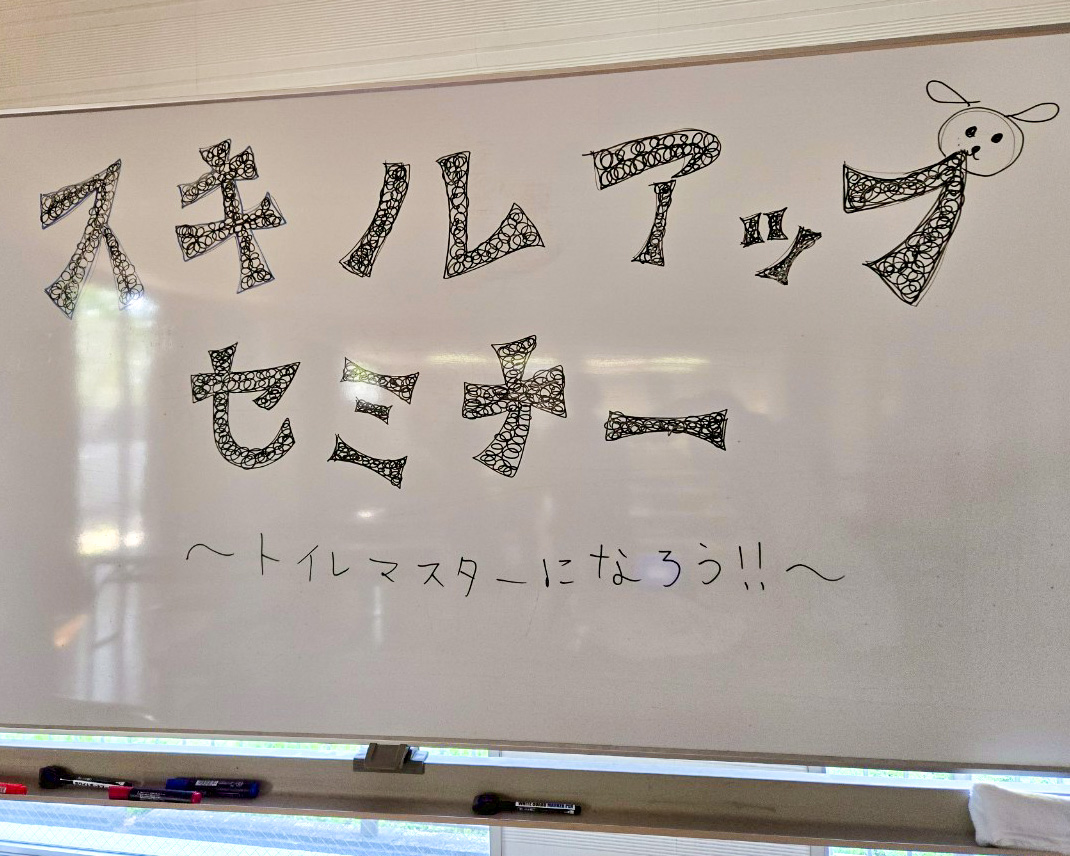 スキルアップ
セミナー
～トイレマスターになろう!!～